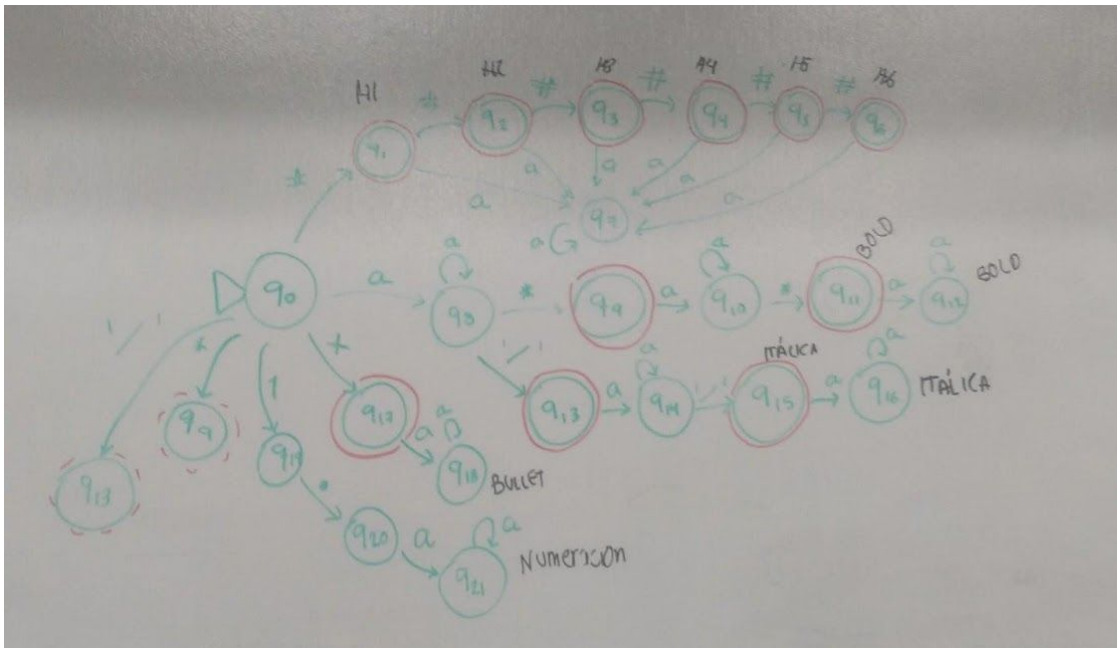 H1 # H2 # H3 # H4 # H5 # H6
q1 q2 q3 q4 q5 q6
# a a a a a a
a q7
q0 a a q8 * q9 a a q10 * BOLD q11 a a q12 BOLD
'_' q13 a a q14 '_' ITÁLICA q15 a a q16 ITÁLICA
'_' * 1 +
q13 q9 q19 q17 a a q18 BULLET
• q20 a a q21 Numeración